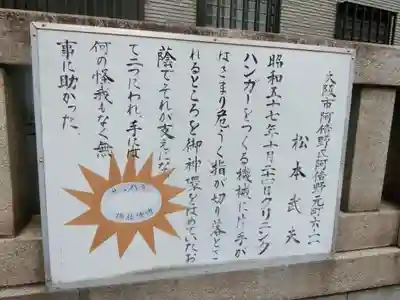 大阪市阿倍野区阿倍野元町六ー一
松本武夫
昭和五十七年十月二十四日クリーニング
ハンガーをつくる機械に片手が
はさまり危うく指が切り落とさ
れるところを御神環をはめていたお
蔭でそれが支えにな
て二つにわれ、手には
何の怪我もなく無
事に助かった。